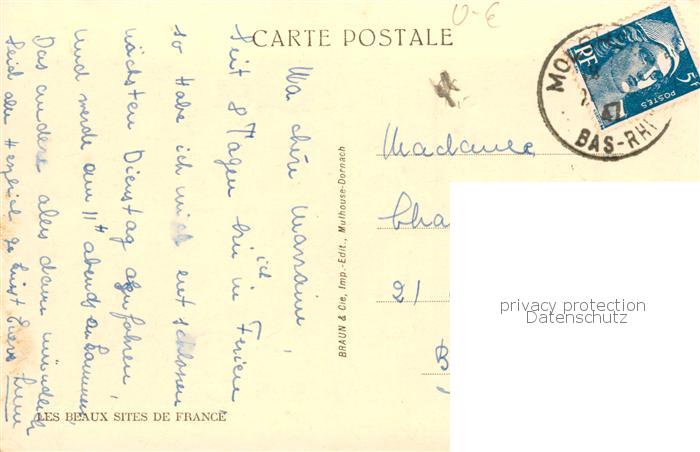 U-E
CARTE POSTALE
Ma chère Marraine,
Seit 8 Tagen bin ich in Ferien
so habe ich mich entschlossen
nächsten Dienstag abzufahren,
und werde um 11 h abends ankommen
Das andere alles dann mündlich
Seid alle herzlich gegrüsst
LES BEAUX SITES DE FRANCE
BRAUN & Cie, Imp.-Edit., Mulhouse-Dornach
RF
5F
POSTES
47
BAS-RHI
Madame
Cha
21
B
privacy protection
Datenschutz